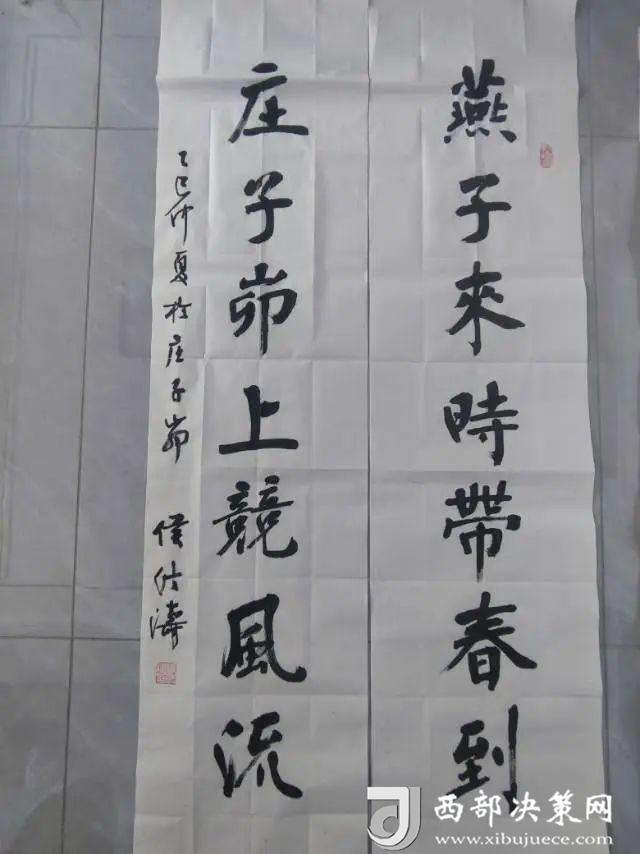 燕子來時帶春到
庄子峁上競風流
乙巳仲夏於庄子峁
侯
濤
西部决策网
www.xibujuece.com